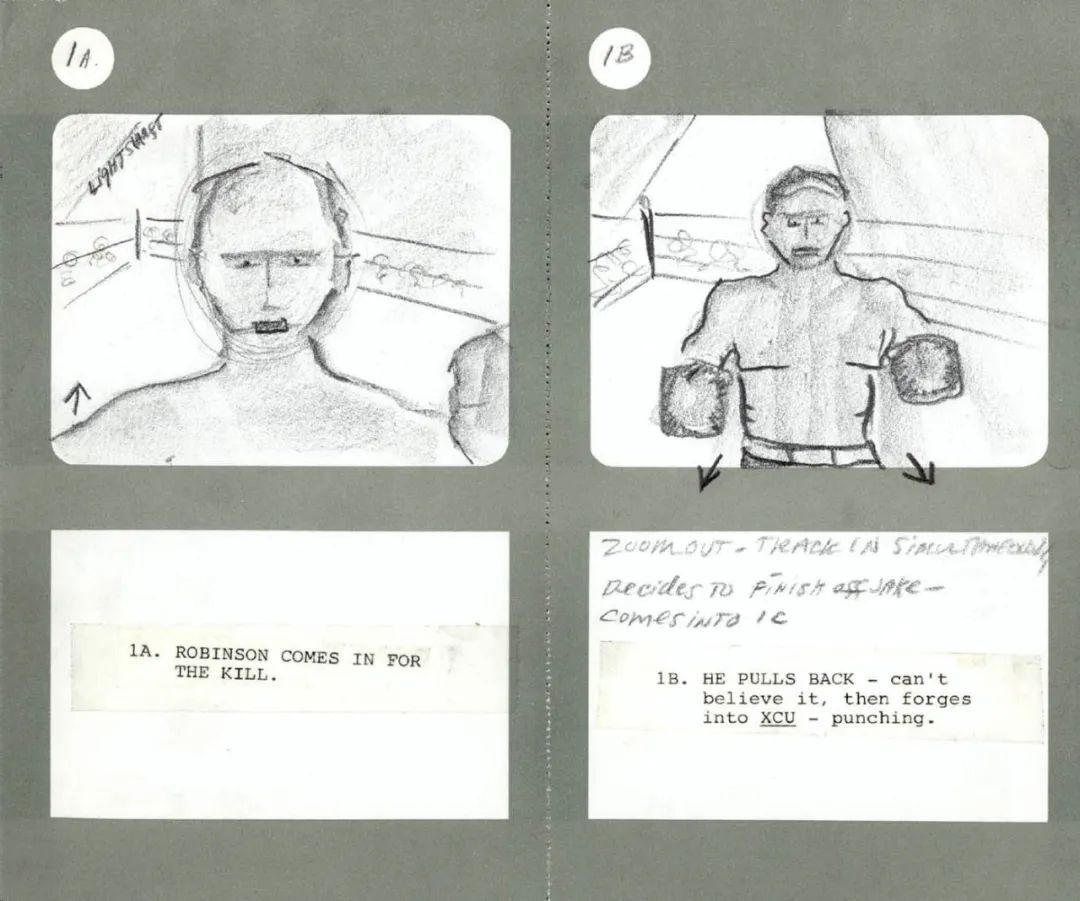 1A.
1B
LIGHTS
ZOOM OUT - TRACK IN SIMULTANEOUSLY
Decides TO FINISH off JAKE -
COMES INTO 1C
1A. ROBINSON COMES IN FOR
THE KILL.
1B. HE PULLS BACK - can't
believe it, then forges
into XCU - punching.